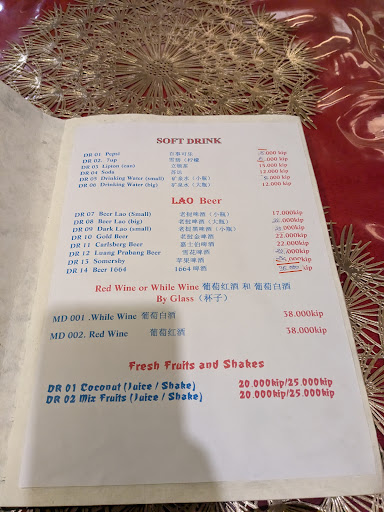 SOFT DRINK
DR 01 Pepsi 百事可乐 .000 kip
DR 02. 7up 雪碧 (柠檬 .000 kip
DR 03 Lipton (can) 立顿茶 15.000 kip
DR 04 Soda 苏达 12.000 kip
DR 05 Drinking Water (small) 矿泉水 (小瓶) .000 kip
DR 06 Drinking Water (big) 矿泉水 (大瓶) 12.000 kip
LAO Beer
DR 07 Beer Lao (Small) 老挝啤酒 (小瓶) 17.000kip
DR 08 Beer Lao (big) 老挝啤酒 (大瓶) .000kip
DR 09 Dark Lao (Small) 老挝黑啤酒 (小瓶) .000kip
DR 10 Gold Beer 老挝金啤酒 22.000kip
DR 11 Carlsberg Beer 嘉士伯啤酒 22.000kip
DR 12 Luang Prabang Beer 雪花啤酒 .000kip
DR 13 Somersby 苹果啤酒 .000kip
DR 14 Beer 1664 1664 啤酒 kip
Red Wine or While Wine 葡萄红酒 和 葡萄白酒
By Glass (杯子)
MD 001 .While Wine 葡萄白酒 38.000kip
MD 002. Red Wine 葡萄红酒 38.000kip
Fresh Fruits and Shakes
DR 01 Coconut (Juice / Shake) 20.000kip/25.000kip
DR 02 Mix Fruits (Juice / Shake) 20.000kip/25.000kip